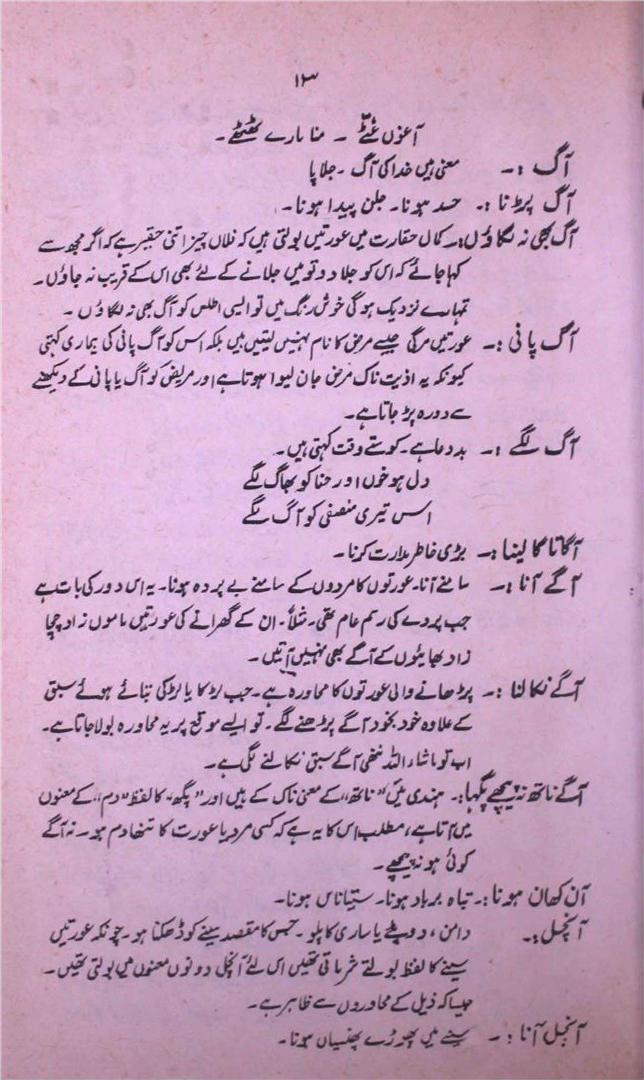 ۱۳
آغوں غٹے ۔ منا مارے ٹھٹھے ۔
آگ :۔ معنی ہیں خدا کی آگ ۔ جلاپا
آگ پڑنا :۔ حسد ہونا۔ جلن پیدا ہونا۔
آگ بھی نہ لگاؤں:۔ کمال حقارت میں عورتیں بولتی ہیں کہ فلاں چیز اتنی حقیر ہے کہ اگر مجھ سے
کہا جائے کہ اس کو جلا دو تو میں جلانے کے لئے بھی اس کے قریب نہ جاؤں۔
تمہارے نزدیک ہوگی خوش رنگ میں تو ایسی اطلس کو آگ بھی نہ لگاؤں ۔
آگ پانی :۔ عورتیں مرگی جیسے مرض کا نام نہیں لیتیں ہیں بلکہ اس کو آگ پانی کی بیماری کہتی
کیونکہ یہ اذیت ناک مرض جان لیوا ہوتا ہے اور مریض کو آگ یا پانی کے دیکھنے
سے دورہ پڑ جاتا ہے۔
آگ لگے :۔ بددعا ہے۔ کوستے وقت کہتی ہیں۔
دل ہو خوں اور حنا کو بھاگ لگے
اس تیری منصفی کو آگ لگے
آگاتاگا لینا :۔ بڑی خاطر مدارت کرنا۔
آگے آنا :۔ سامنے آنا۔ عورتوں کا مردوں کے سامنے بے پردہ ہونا۔ یہ اس دور کی بات ہے
جب پردے کی رسم عام تھی۔ مثلاً۔ ان کے گھرانے کی عورتیں ماموں زاد چچا
زاد بھائیوں کے آگے بھی نہیں آتیں ۔
آگے نکالنا :۔ پڑھانے والی عورتوں کا محاورہ ہے۔ جب لڑکا یا لڑکی بتائے ہوئے سبق
کے علاوہ خود بخود آگے پڑھنے لگے۔ تو ایسے موقع پر یہ محاورہ بولا جاتا ہے۔
اب تو ماشاءاللہ ننھی آگے سبق نکالنے لگی ہے۔
آگے ناتھ نہ پیچھے پگہا:۔ ہندی میں "ناتھ" کے معنی ناک کے ہیں اور "پگھ" کا لفظ "دم" کے معنوں
میں آتا ہے، مطلب اس کا یہ ہے کہ کسی مرد یا عورت کا تنہا دم ہو۔ نہ آگے
کوئی ہو نہ پیچھے۔
آن کھان ہونا :۔ تباہ برباد ہونا۔ ستیاناس ہونا۔
آنچل :۔ دامن، دوپٹے یا ساری کا پلو ۔ جس کا مقصد سینے کو ڈھکنا ہو۔ چونکہ عورتیں
سینے کا لفظ بولتے شرماتی تھیں اس لئے آنچل دونوں معنوں میں بولتی تھیں۔
جیسا کہ ذیل کے محاوروں سے ظاہر ہے۔
آنچل آنا :۔ سینے میں پھوڑے پھنسیاں ہونا۔